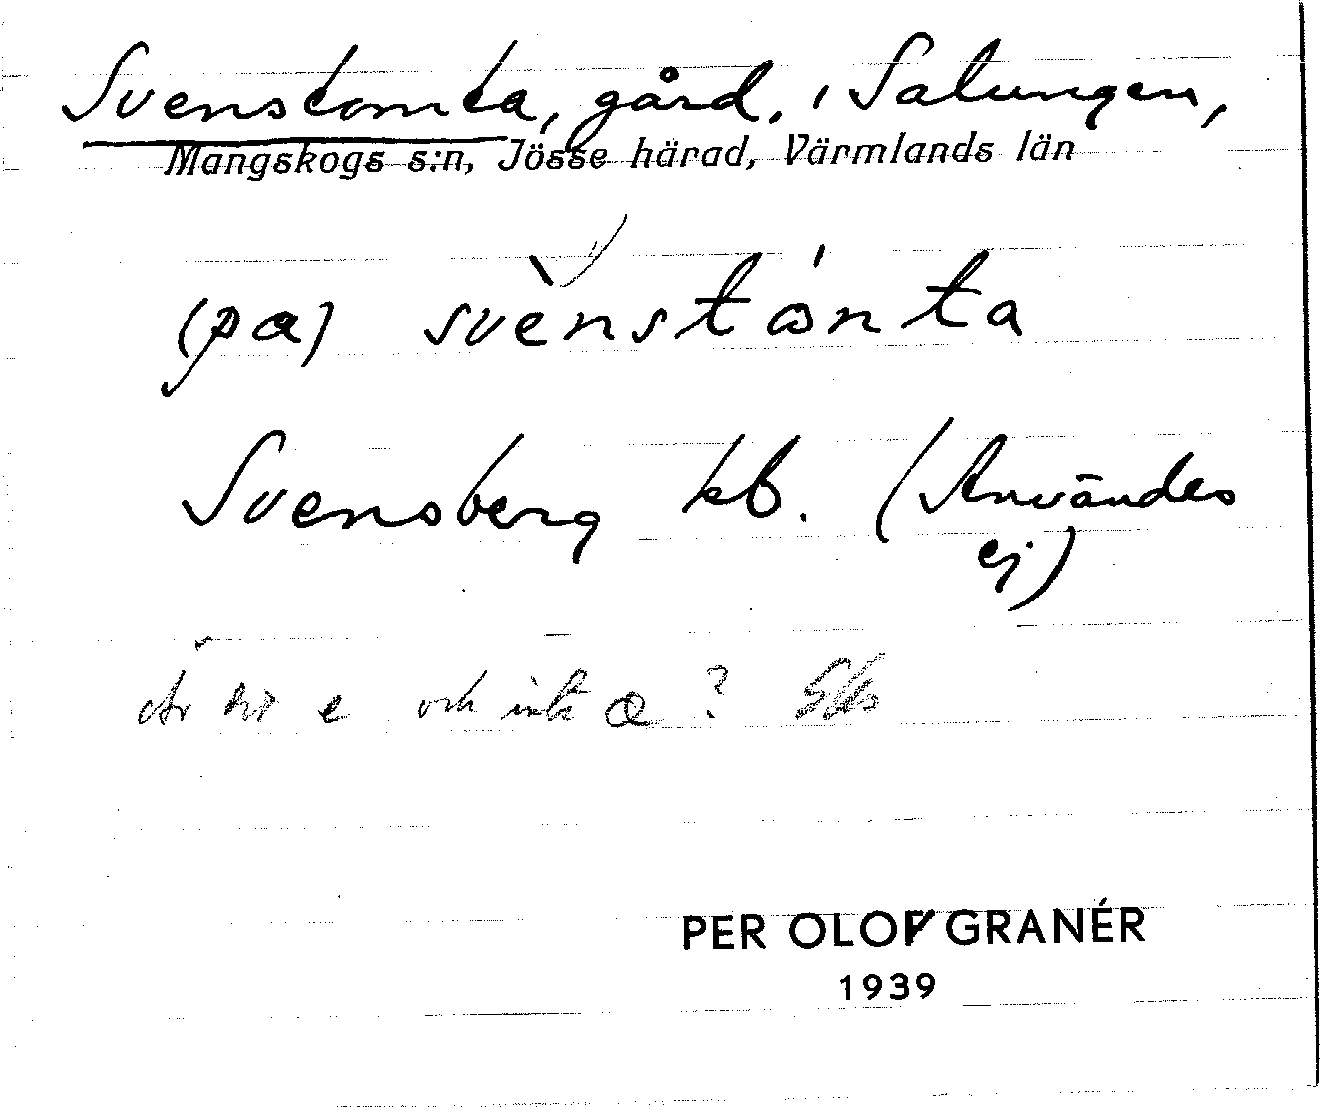 Svenstomta, gård, i Salungen,
Mangskogs s:n, Jösse härad, Värmlands län
(pɑ) svènstɷ́nta
Svensberg kb. (Användes
ej)
Är det e och inte æ?
PER OLOF GRANÉR
1939